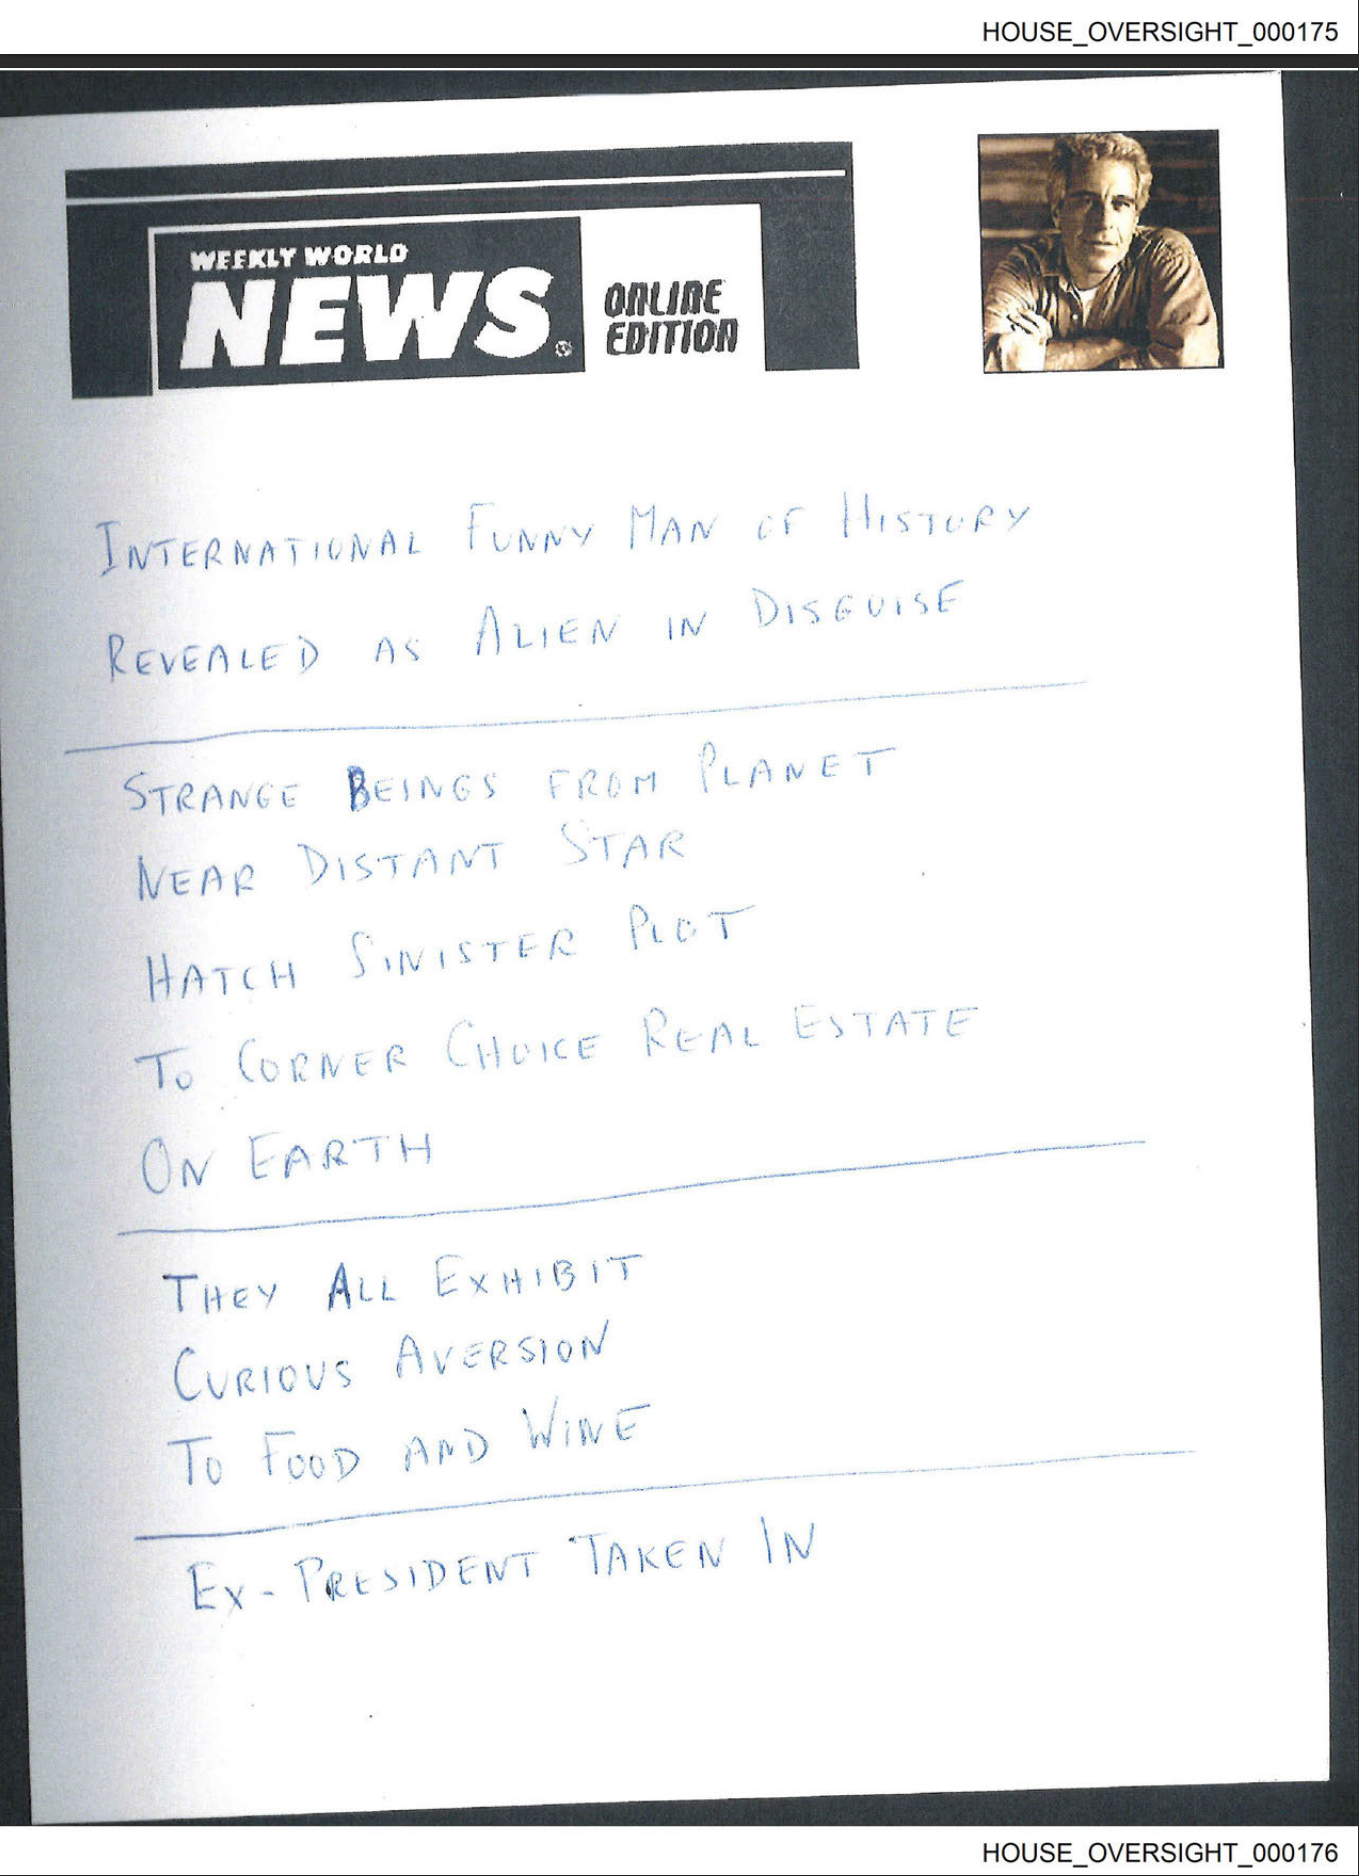 HOUSE_OVERSIGHT_000175
WEEKLY WORLD
NEWS®
ONLINE
EDITION
INTERNATIONAL FUNNY MAN OF HISTORY
REVEALED AS ALIEN IN DISGUISE
STRANGE BEINGS FROM PLANET
NEAR DISTANT STAR
HATCH SINISTER PLOT
TO CORNER CHOICE REAL ESTATE
ON EARTH
THEY ALL EXHIBIT
CURIOUS AVERSION
TO FOOD AND WINE
EX-PRESIDENT TAKEN IN
HOUSE_OVERSIGHT_000176